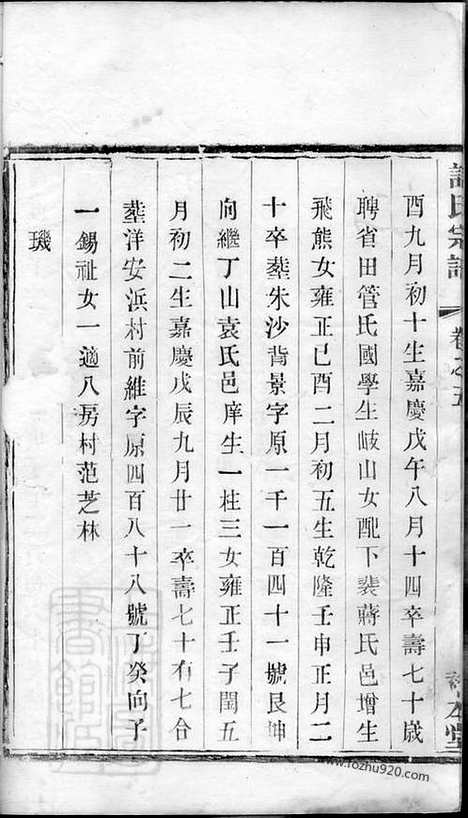 許氏宗譜
卷之五
酉九月初十生嘉慶戊午八月十四卒壽七十歲
聘省田管氏國學生岐山女配下裴蔣氏邑增生
飛熊女雍正己酉二月初五生乾隆壬申正月二
十卒塟朱沙背景字原一千一百四十一號艮坤
向繼丁山袁氏邑庠生一柱三女雍正壬子閏五
月初二生嘉慶戊辰九月廿一卒壽七十有七合
塟洋安浜村前維字原四百八十八號丁癸向子
一錫祉女一適八房村范芝林
璣
www.fozhu920.com